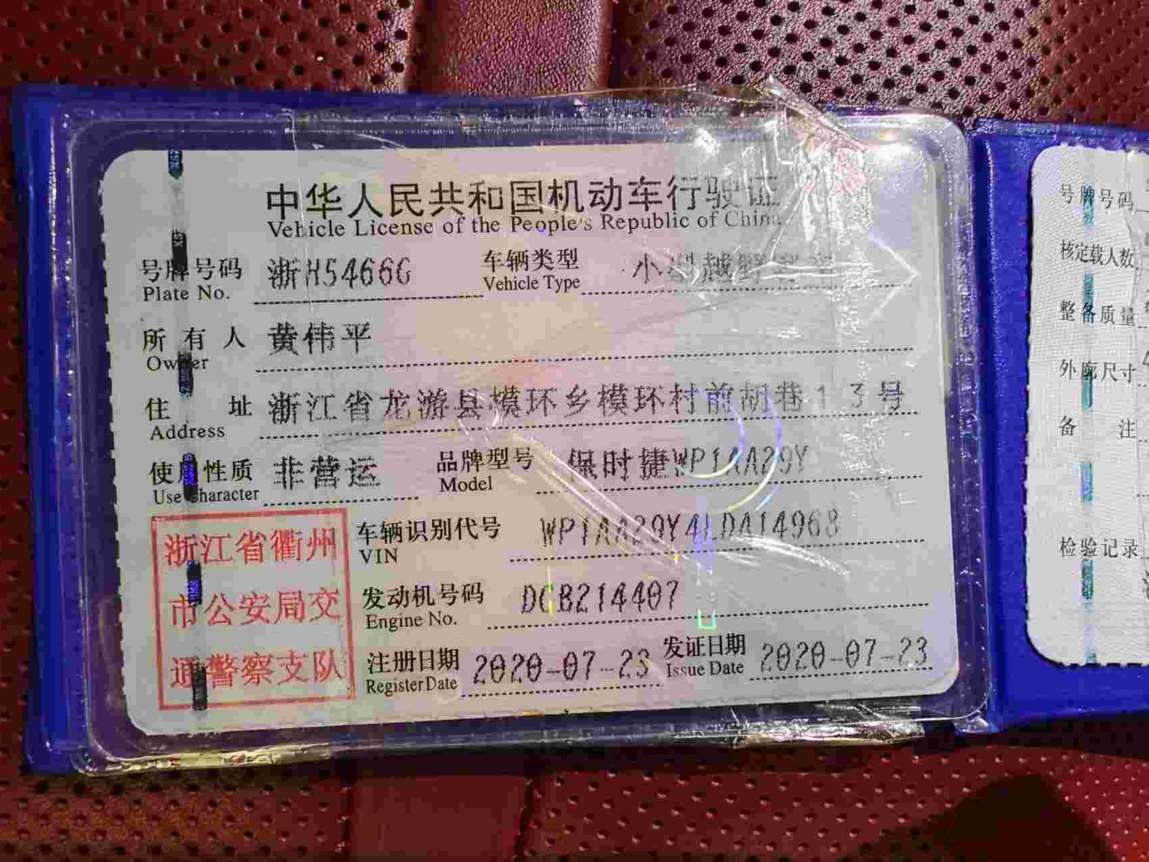 中华人民共和国机动车行驶证
Vehicle License of the People's Republic of China
号牌号码 浙H5466G 车辆类型 小型越野客车
Plate No. Vehicle Type
所有人 黄伟平
Owner
住址 浙江省龙游县模环乡模环村前胡巷13号
Address
使用性质 非营运 品牌型号 保时捷WP1AA29Y
Use Character Model
浙江省衢州
市公安局交
通警察支队
车辆识别代号 WP1AA29Y4LDA14968
VIN
发动机号码 DCB214407
Engine No.
注册日期 2020-07-23 发证日期 2020-07-23
Register Date Issue Date
号牌号码
核定载人数
整备质量
外廓尺寸
备注
检验记录